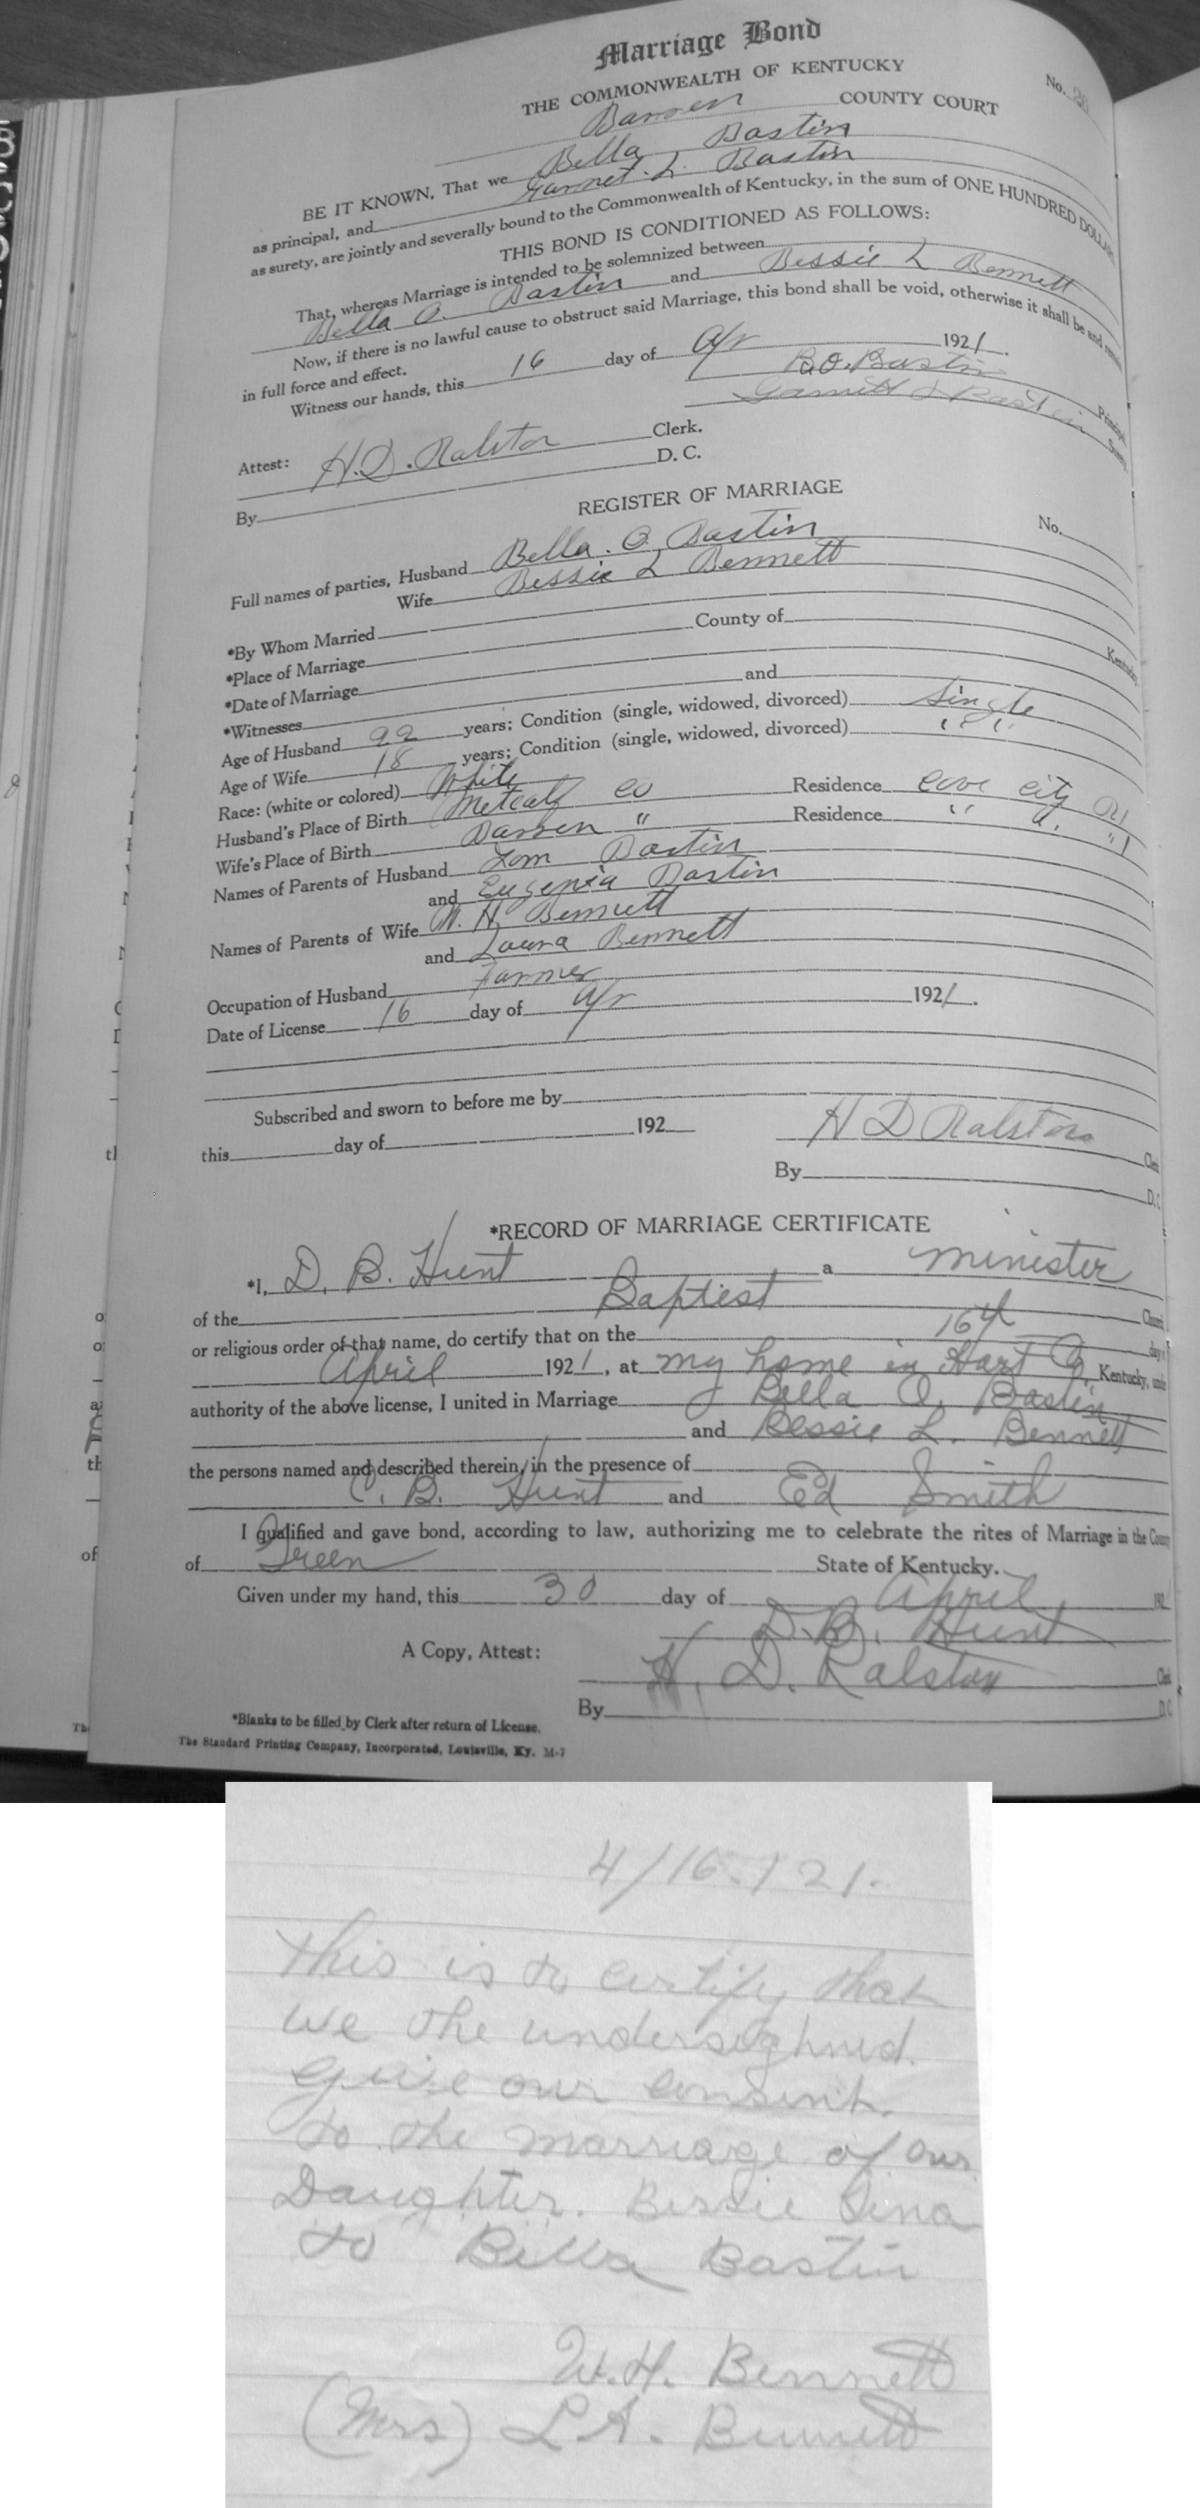 Marriage Bond
THE COMMONWEALTH OF KENTUCKY
No.
Barren COUNTY COURT
BE IT KNOWN, That we Bella Bastin
as principal, and Garnet. L. Bastin
as surety, are jointly and severally bound to the Commonwealth of Kentucky, in the sum of ONE HUNDRED DOLLARS
THIS BOND IS CONDITIONED AS FOLLOWS:
That, whereas Marriage is intended to be solemnized between
Bella O. Bastin and Bessie L Bennett
Now, if there is no lawful cause to obstruct said Marriage, this bond shall be void, otherwise it shall be and
in full force and effect.
Witness our hands, this 16 day of Apr 1921.
B.O. Bastin Principal
Garnett L Bastin Surety
Attest: H.D. Ralston Clerk.
By D. C.
REGISTER OF MARRIAGE
No.
Full names of parties, Husband Bella. O. Bastin
Wife Bessie L Bennett
*By Whom Married
*Place of Marriage County of Kentucky
*Date of Marriage
*Witnesses and
Age of Husband 22 years; Condition (single, widowed, divorced) Single
Age of Wife 18 years; Condition (single, widowed, divorced) " "
Race: (white or colored) White
Husband's Place of Birth Metcalf co Residence Cave City
Wife's Place of Birth Barren " Residence " " "
Names of Parents of Husband Tom Bastin
and Eugenia Bastin
Names of Parents of Wife W. H. Bennett
and Laura Bennett
Occupation of Husband Farmer
Date of License 16 day of Apr 1921.
Subscribed and sworn to before me by
this day of 192
H D Ralston Clerk
By D.C.
*RECORD OF MARRIAGE CERTIFICATE
*I, D. B. Hunt a minister
of the Baptist Church
or religious order of that name, do certify that on the 16th day
April 1921, at my home in Hart Co, Kentucky, under
authority of the above license, I united in Marriage Bella O. Bastin
and Bessie L. Bennett
the persons named and described therein, in the presence of
C. B. Hunt and Ed Smith
I qualified and gave bond, according to law, authorizing me to celebrate the rites of Marriage in the County
of Green State of Kentucky.
Given under my hand, this 30 day of April 192
D. B. Hunt
A Copy, Attest:
H. D. Ralston Clerk
By D.C.
*Blanks to be filled by Clerk after return of License.
The Standard Printing Company, Incorporated, Louisville, Ky. M-7
4/16./21.
This is to certify that
we the undersighned.
give our consent.
to the marriage of our
Daughter. Bessie Lena
to Bella Bastin
W.H. Bennett
(Mrs) L A. Bennett